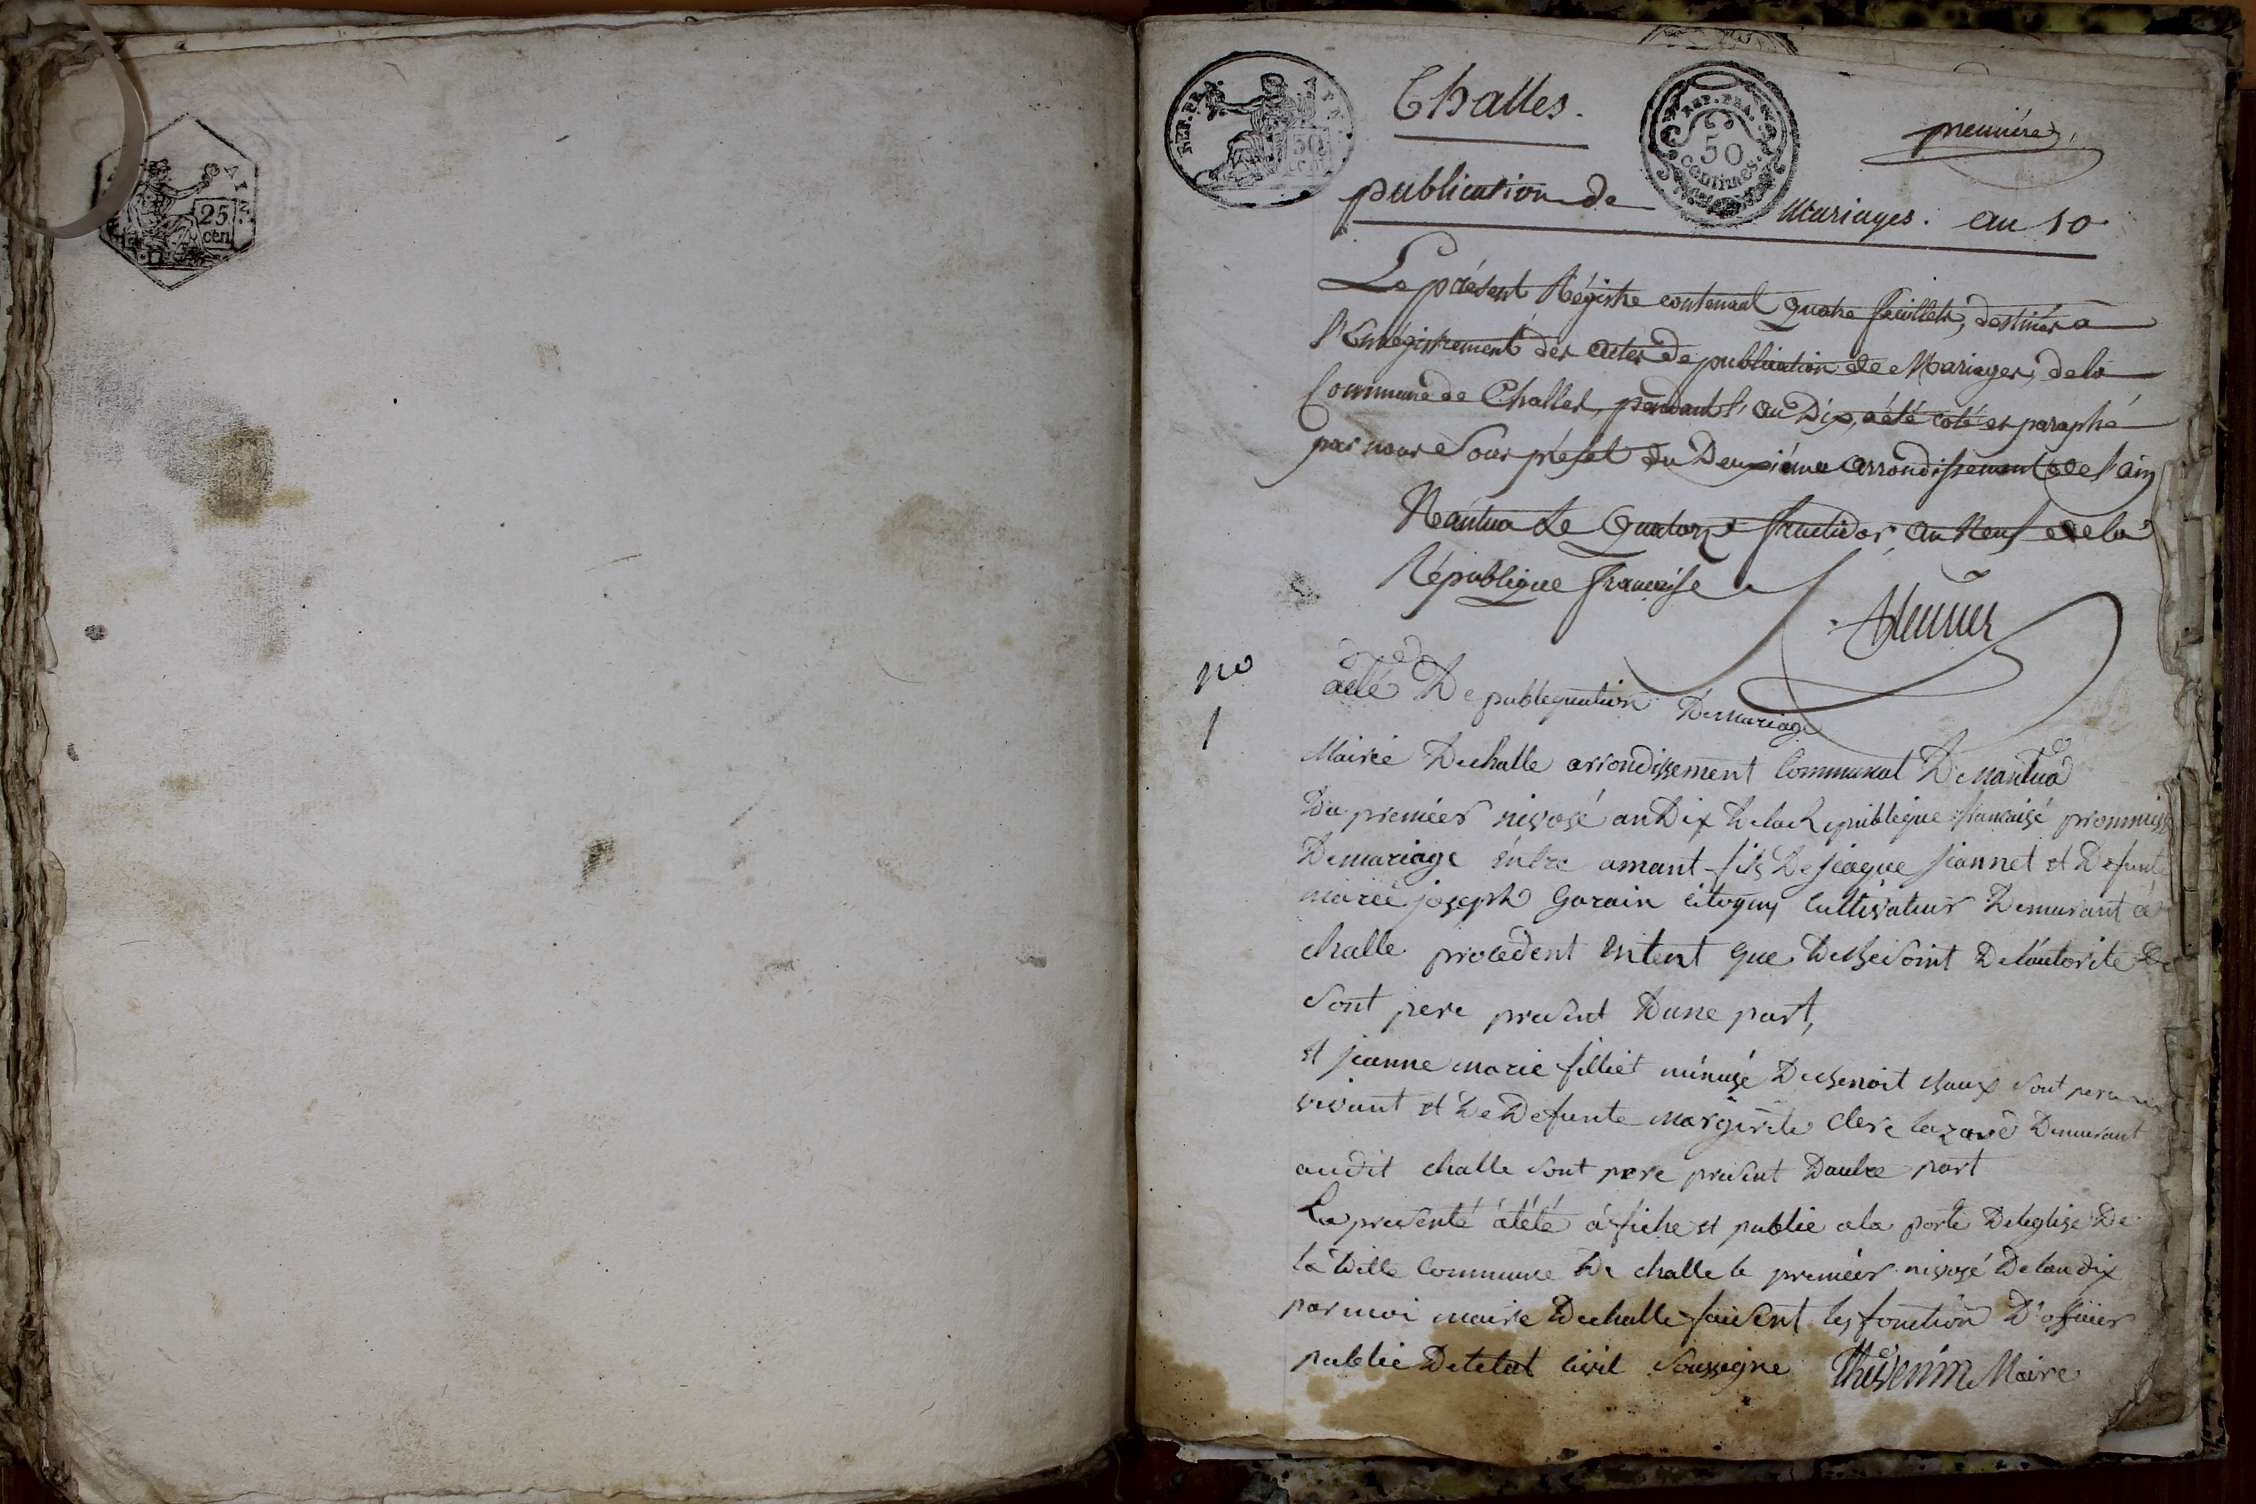 25
cen
REP. FRA.
Challes.
REP. FRA.
50
centimes.
première,
publication de Mariages. an 10
Le présent Régistre contenant quatre feuillets, destinés à
l'Enrégistrement des actes de publication de Mariages, de la
Commune de Challes, pendant l'an Dix, a été coté et paraphé
par nous Sous préfet du Deuxième arrondissement de l'ain
Nantua le Quatorze fructidor an Neuf de la
République française
No
1
acte De publequation De mariage
Mairie De challe arrondissement Communal De Nantua
Du premier nivosé an Dix De la Republeque francaisé prommisse
De mariage entre amant fils De jeaque jeannet et Defunte
marie joseph Garain citoyen cultivateur Demurant a
challe procedent entent que Besoint De l'autorite De
sont pere present Dune part,
et jeanne marie filliet Benoit sont pere
vivant et De Defunte margerite clerc Demurant
audit challe sont pere present Dautre part
La presenté a été afiche et publie a la porte De leglise De
la Ditte Commune De challe le premier nivosé De lan dix
par moi maire De challe faisent les fonction D'officier
publie De letat civil soussigne Thévenin Maire